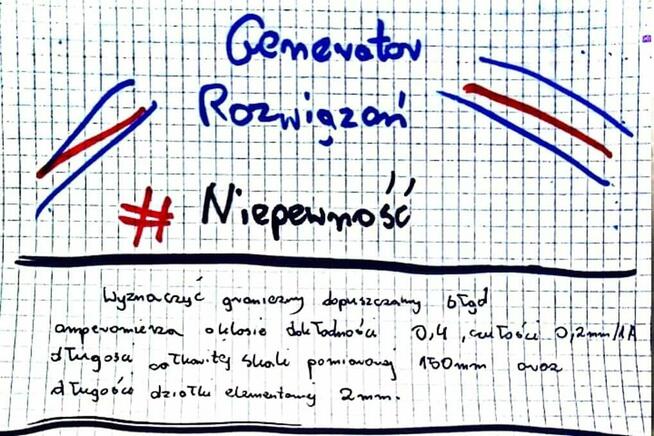 Generator
Rozwiązań
# Niepewność
Wyznaczyć graniczny dopuszczalny błąd
amperomierza o klasie dokładności 0,4, czułości 0,2mm/1A
długości całkowitej skali pomiarowej 150mm oraz
długości działki elementarnej 2mm.